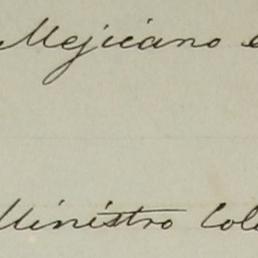 Mejicano e
Ministro Col